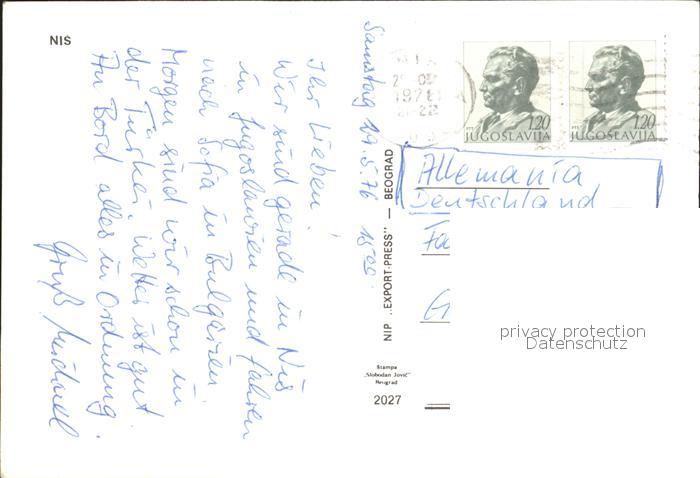 NIS
Samstag 29.5.76 15⁰⁰
Ihr Lieben!
Wir sind gerade in Nis
in Jugoslawien und fahren
nach Sofia in Bulgarien.
Morgen sind wir schon in
der Türkei. Wetter ist gut
An Bord alles in Ordnung.
Gruß Michael
NIP „EXPORT-PRESS" — BEOGRAD
Stampa
„Slobodan Jović"
Beograd
2027
1.20
JUGOSLAVIJA
1.20
JUGOSLAVIJA
Allemania
Deutschland
privacy protection
Datenschutz